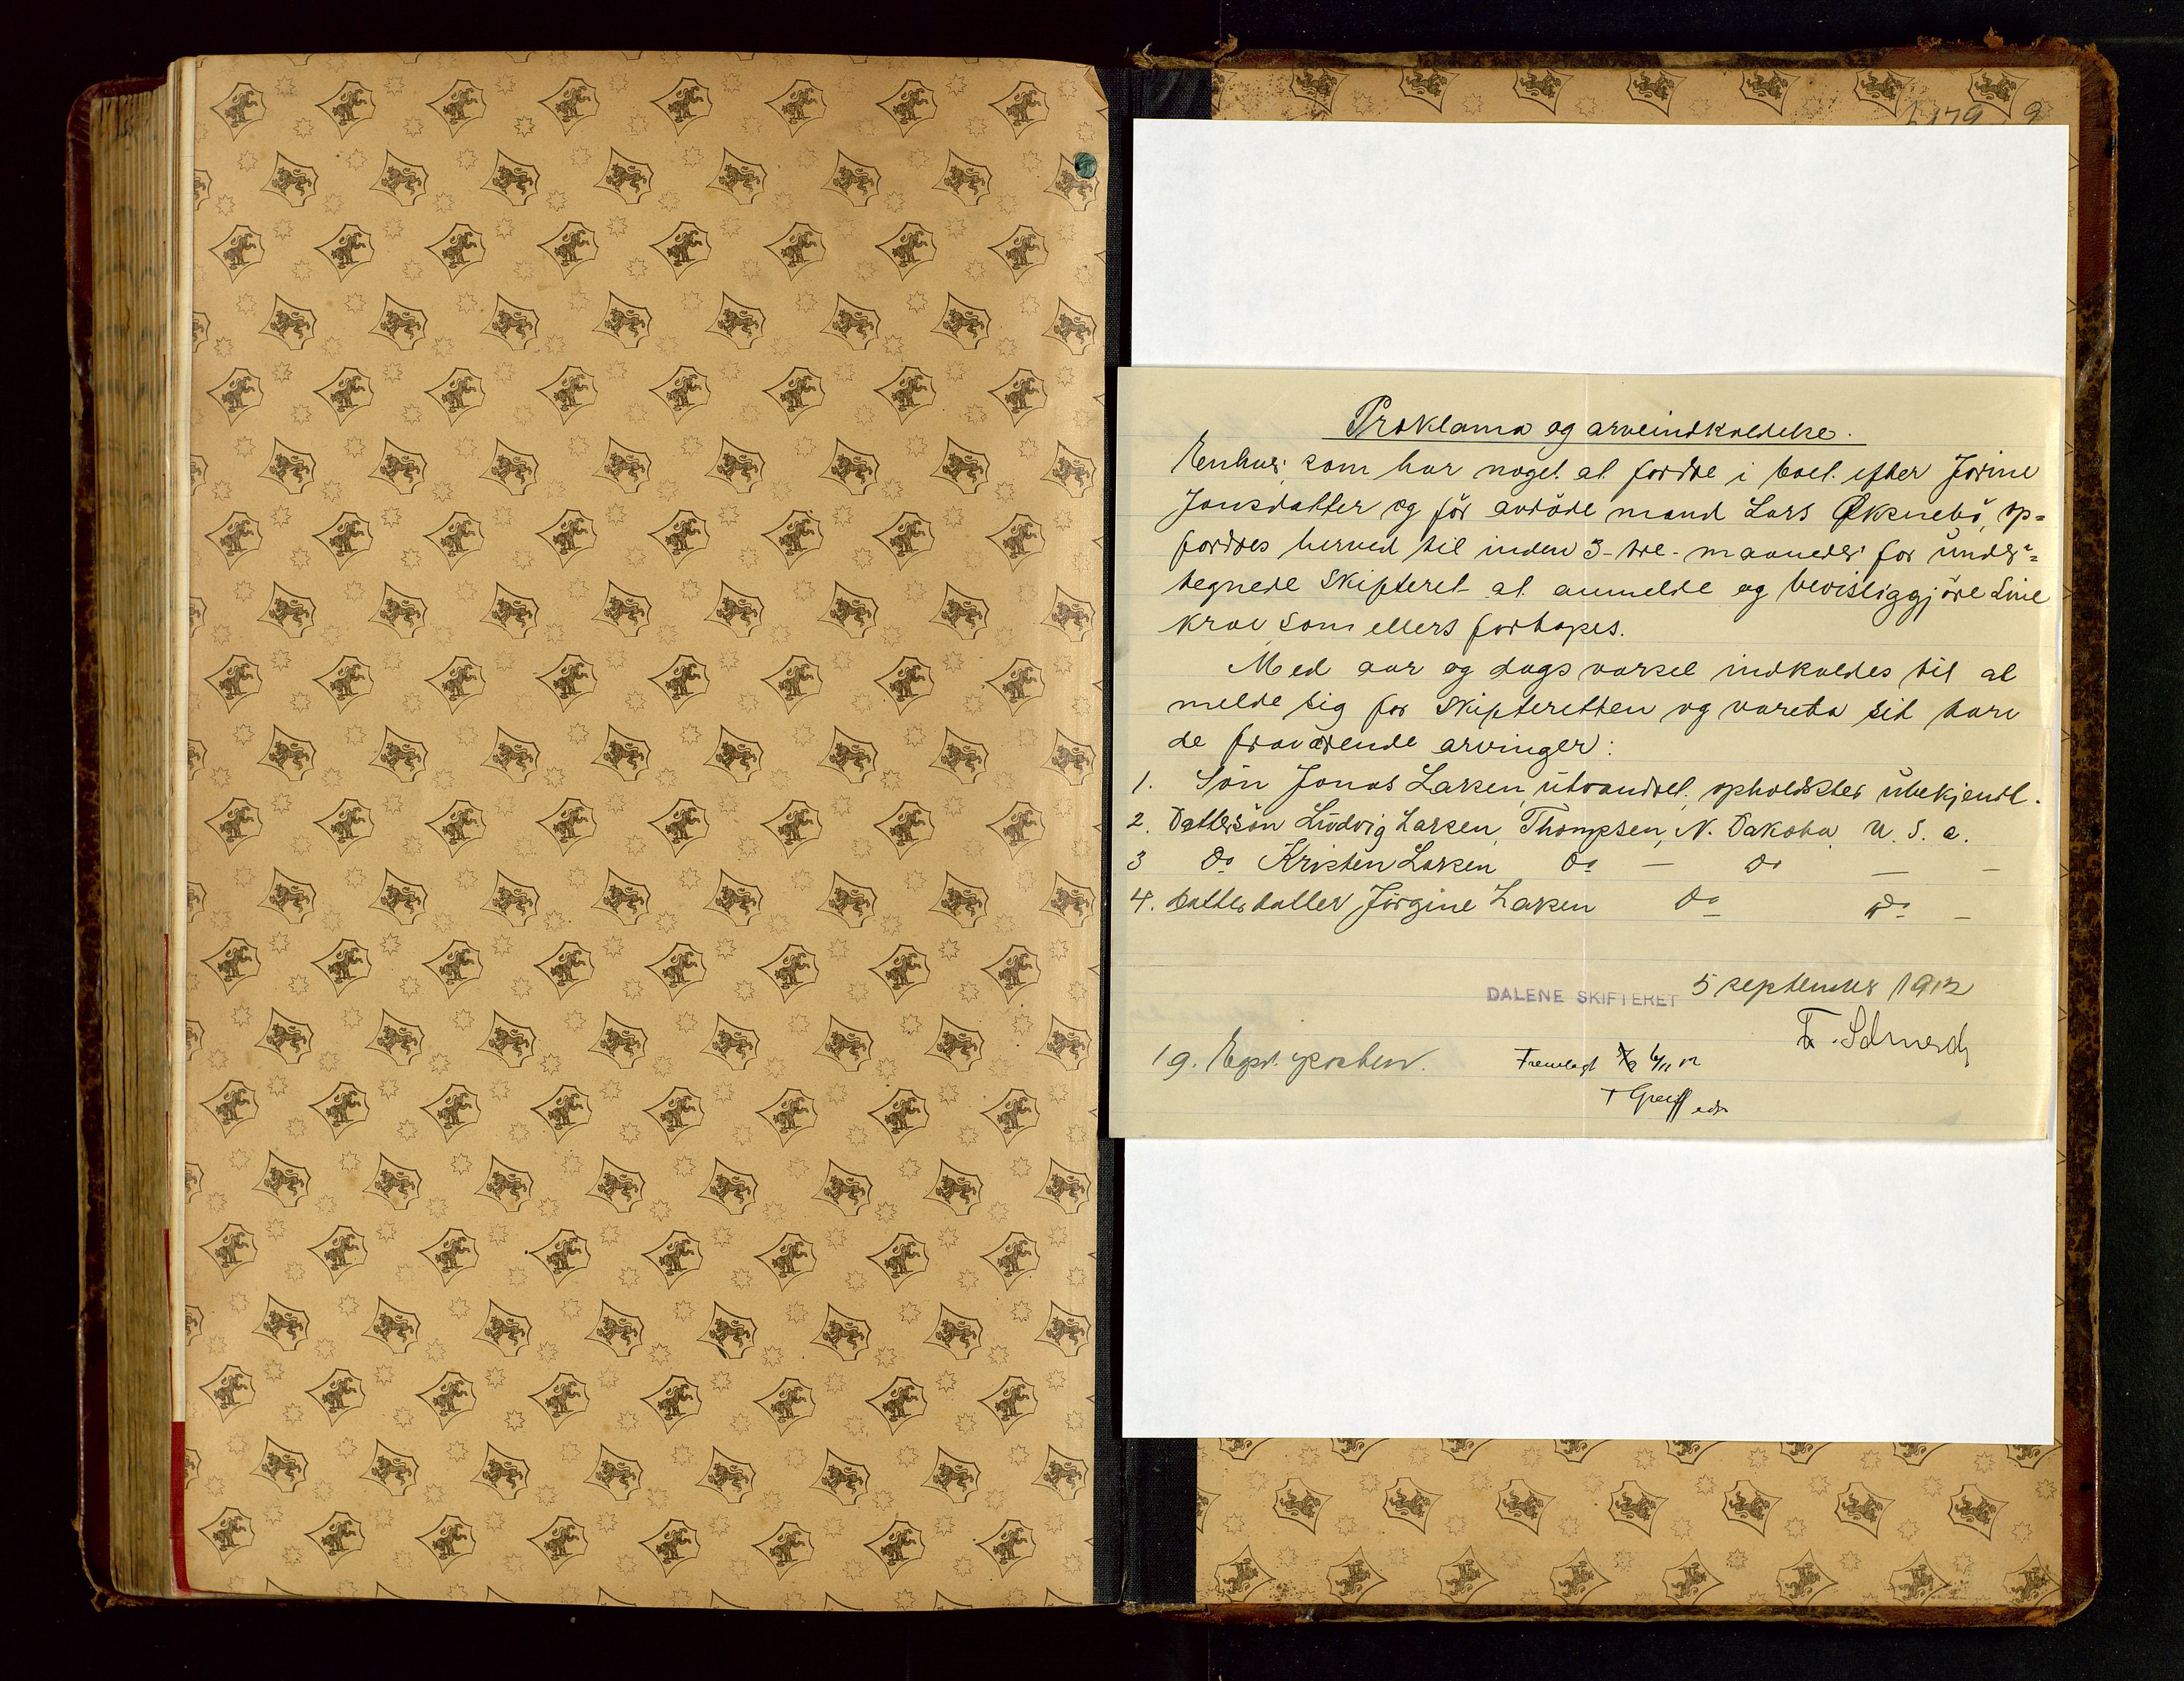 Proklama og arveindkaldelse.
Enhver, som har noget at fordre i boet efter Jorine
Jonsdatter og før avdøde mand Lars Øksnebø, op=
fordres herved til inden 3 - tre - maaneder for under=
tegnede skifteret at anmelde og bevisliggjøre sine
krav som ellers fortapes.
Med aar og dags varsel indkaldes til at
melde sig for skifteretten og vareta sit tarv
de fraværende arvinger:
1. Søn Jonas Larsen, utvandret, opholdssted ubekjendt.
2. Dattersøn Ludvig Larsen, Thompsen, N. Dakota, U. S. a.
3 Do Kristen Larsen Do — Do — —
4. Datterdatter Jørgine Larsen Do Do —
DALENE SKIFTERET 5 september 1912
F.
19. Egs. posten.
Fremlagt 6/11 12
T Greiff